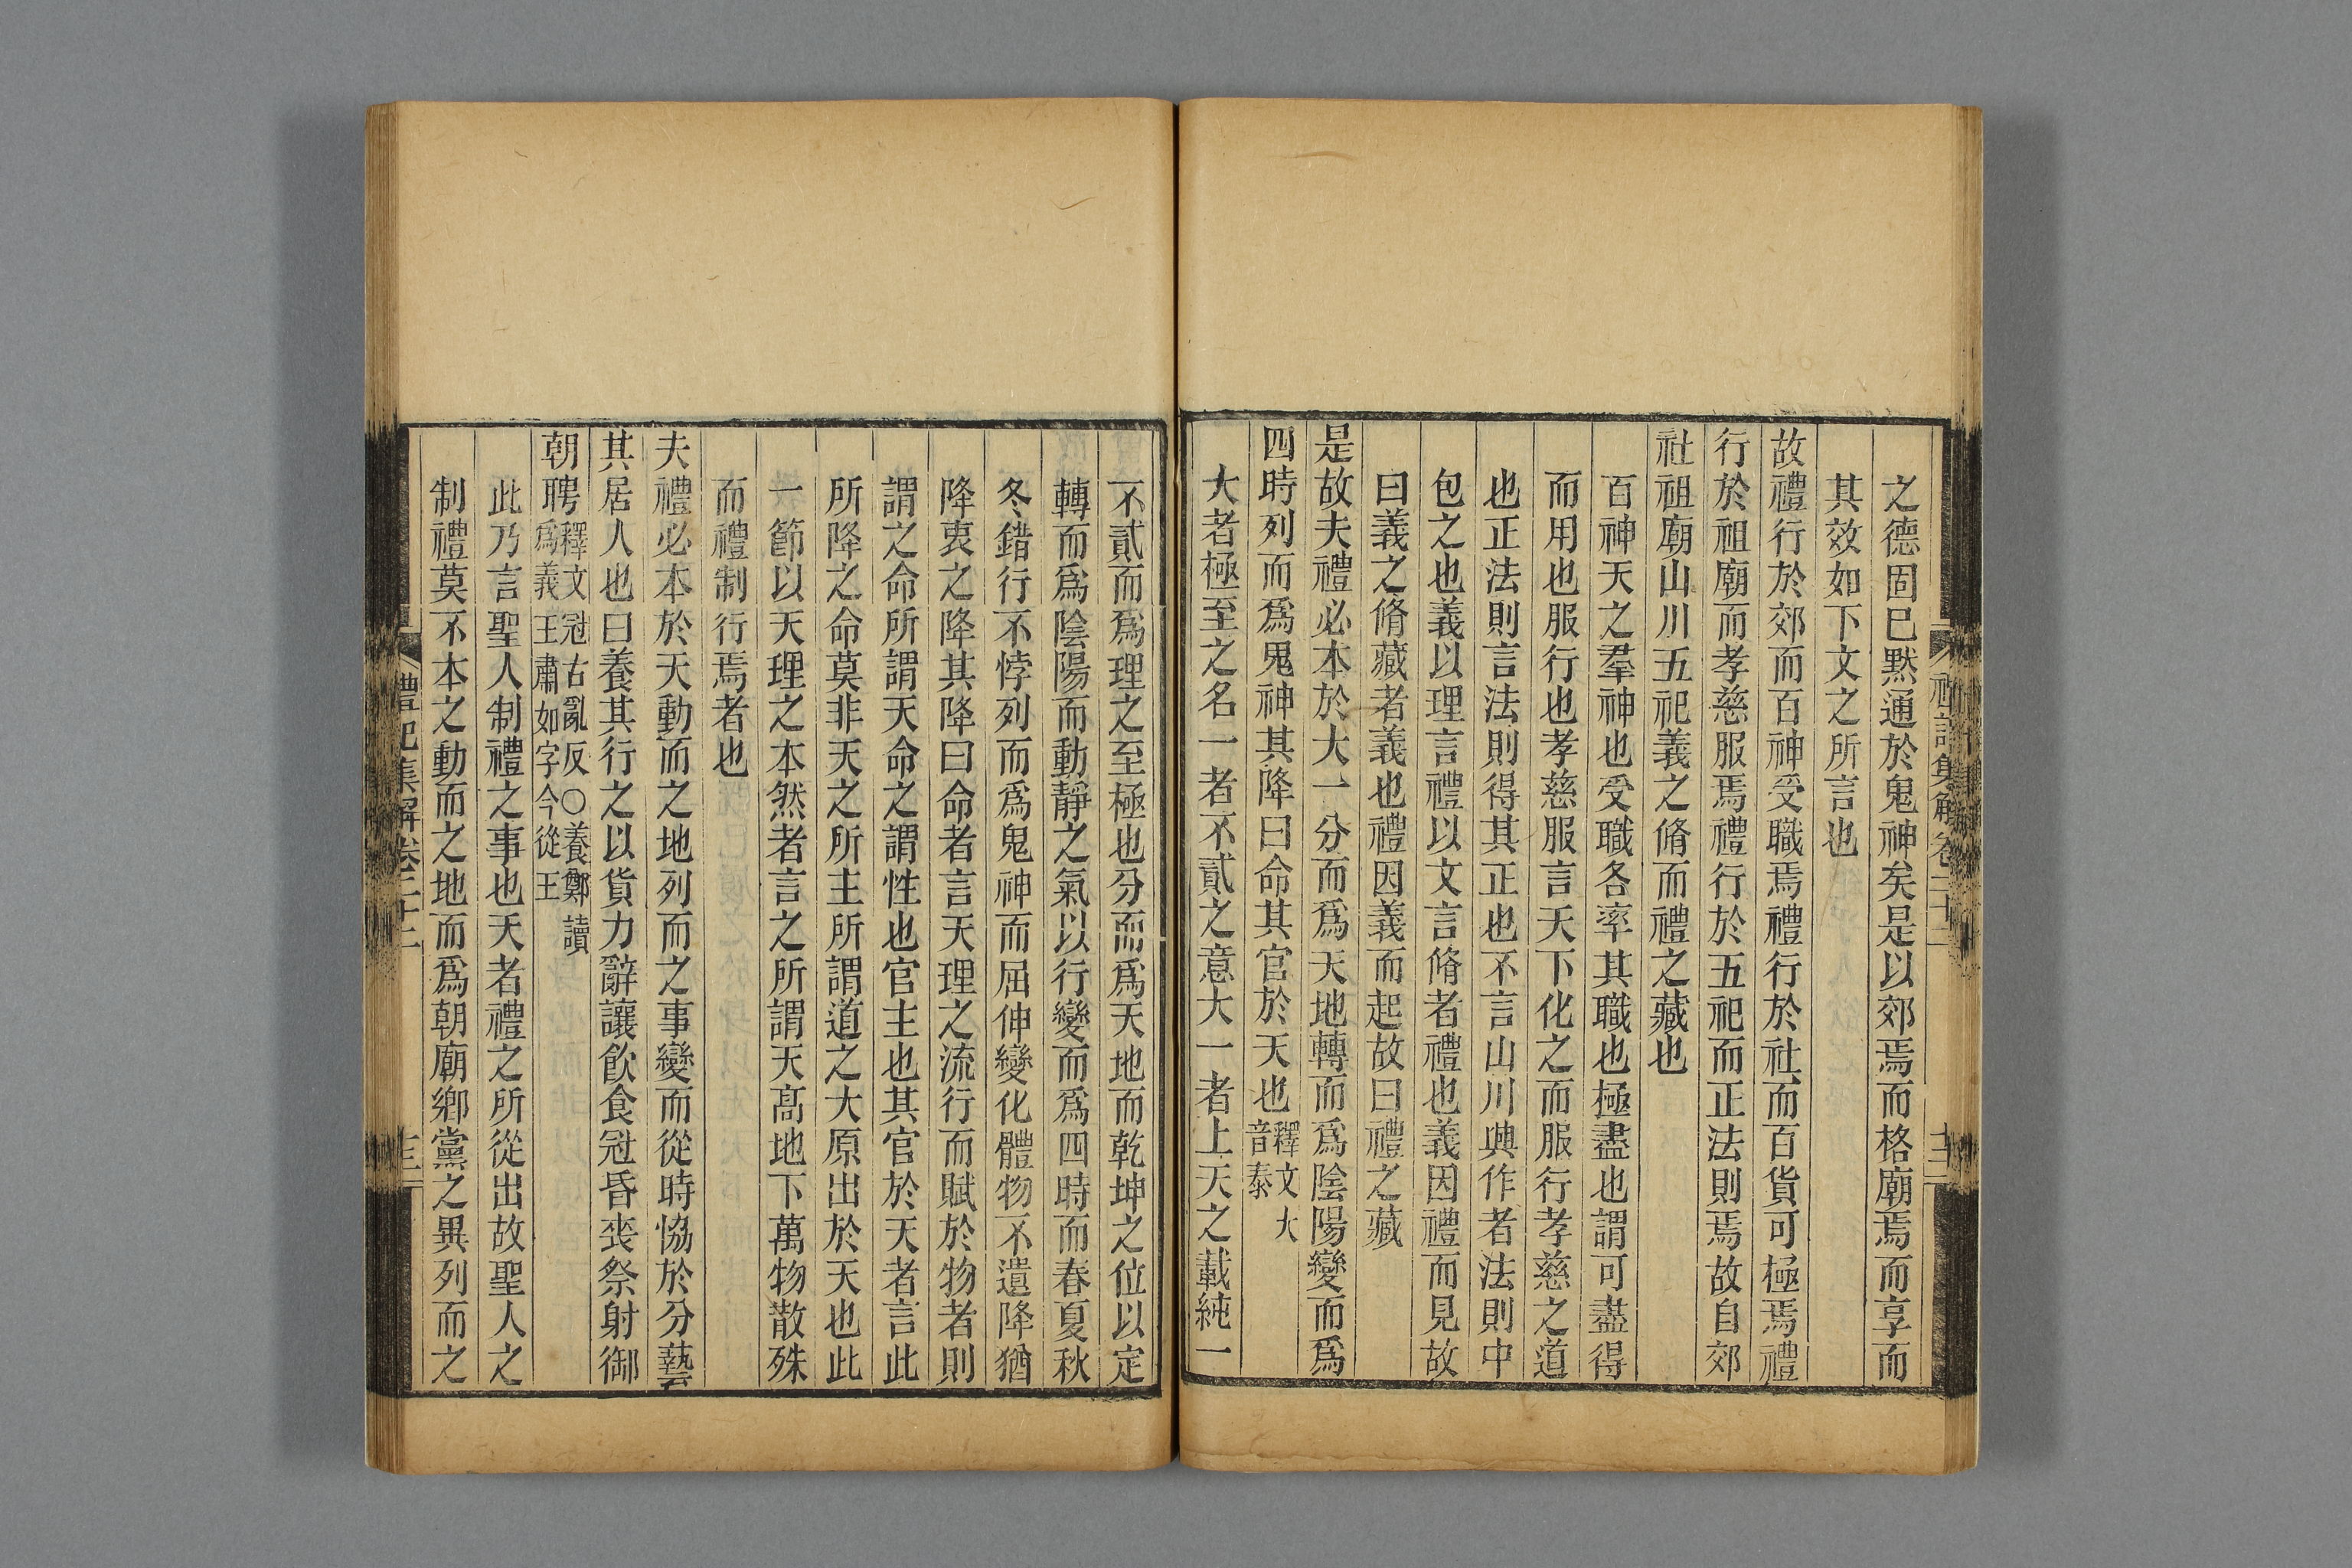 之德固已默通於鬼神矣是以郊焉而格廟焉而享而
其效如下文之所言也
故禮行於郊而百神受職焉禮行於社而百貨可極焉禮
行於祖廟而孝慈服焉禮行於五祀而正法則焉故自郊
社祖廟山川五祀義之脩而禮之藏也
百神天之羣神也受職各率其職也極盡也謂可盡得
而用也服行也孝慈服言天下化之而服行孝慈之道
也正法則言法則得其正也不言山川興作者法則中
包之也義以理言禮以文言脩者禮也義因禮而見故
曰義之脩藏者義也禮因義而起故曰禮之藏
是故夫禮必本於大一分而爲天地轉而爲陰陽變而爲
四時列而爲鬼神其降曰命其官於天也釋文大音泰
大者極至之名一者不貳之意大一者上天之載純一
不貳而爲理之至極也分而爲天地而乾坤之位以定
轉而爲陰陽而動靜之氣以行變而爲四時而春夏秋
冬錯行不悖列而爲鬼神而屈伸變化體物不遺降猶
降衷之降其降曰命者言天理之流行而賦於物者則
謂之命所謂天命之謂性也官主也其官於天者言此
所降之命莫非天之所主所謂道之大原出於天也此
一節以天理之本然者言之所謂天高地下萬物散殊
而禮制行焉者也
夫禮必本於天動而之地列而之事變而從時協於分藝
其居人也曰養其行之以貨力辭讓飲食冠昏喪祭射御
朝聘釋文冠古亂反〇養鄭讀爲義王肅如字今從王
此乃言聖人制禮之事也天者禮之所從出故聖人之
制禮莫不本之動而之地而爲朝廟鄉黨之異列而之
禮記集解卷二十二